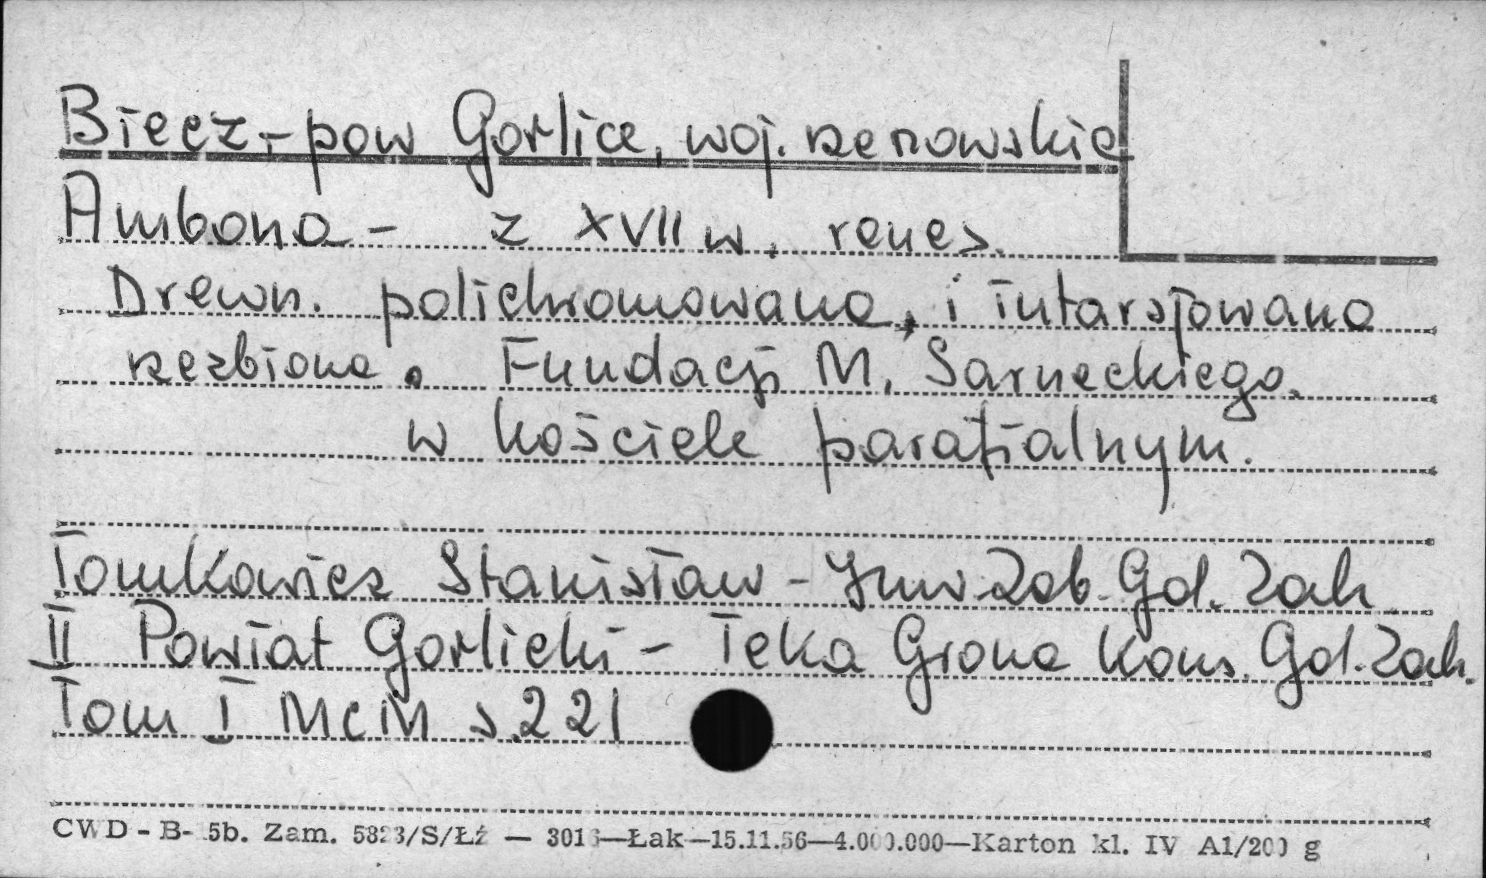 Biecz, – pow Gorlice, woj. rzeszowskie
Ambona – z XVII w. renes.
Drewn. polichromowana, i intarsjowana
rzezbiona. Fundacji M. Sarneckiego.
w kościele parafialnym.
Tomkowicz Stanisław – Inw. Zab. Gal. Zach.
II Powiat Gorlicki – Teka Grona Kons. Gal. Zach.
Tom I MCM s. 221
CWD - B- 5b. Zam. 5823/S/Łź — 3016—Łak—15.11.56—4.000.000—Karton kl. IV A1/200 g